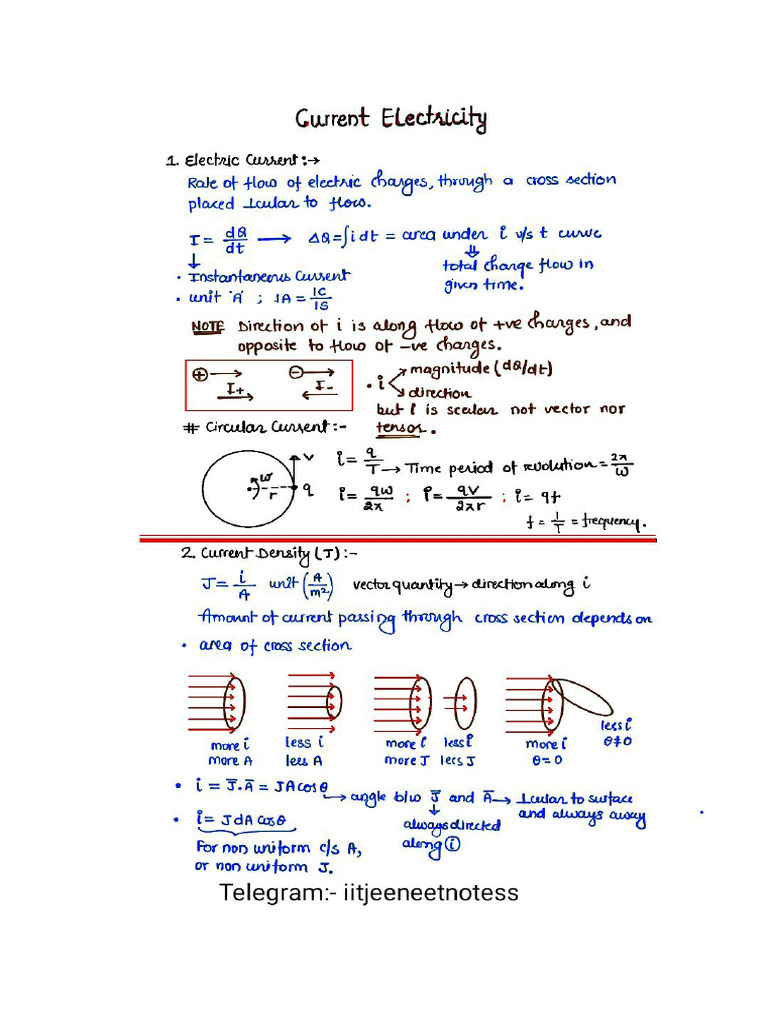 Current Electricity
1. Electric Current :→
Rate of flow of electric charges, through a cross section
placed ⊥cular to flow.
I = dQ/dt → ΔQ = ∫i dt = area under i v/s t curve
↓ ⇓
• Instantaneous Current total charge flow in
• unit 'A' ; 1A = 1C/1S given time.
NOTE Direction of i is along flow of +ve charges, and
opposite to flow of -ve charges.
⊕→ ⊖→
I+ I-
• i magnitude (dQ/dt)
direction
but i is scalar not vector nor
tensor.
# Circular Current :-
v
w
r
q
i = q/T → Time period of revolution = 2π/ω
i = qω/2π ; i = qv/2πr ; i = qf
f = 1/T = frequency.
2. Current Density (J) :-
J = i/A unit (A/m²) vector quantity → direction along i
Amount of current passing through cross section depends on
• area of cross section
more i less i more i less i more i less i
more A less A more J less J θ = 0 θ ≠ 0
• i = J̄.Ā = JA cosθ
→ angle b/w J̄ and Ā → ⊥cular to surface
and always away
↓
always directed
along i
• i = J dA cosθ
For non uniform c/s A,
or non uniform J.
Telegram:- iitjeeneetnotess